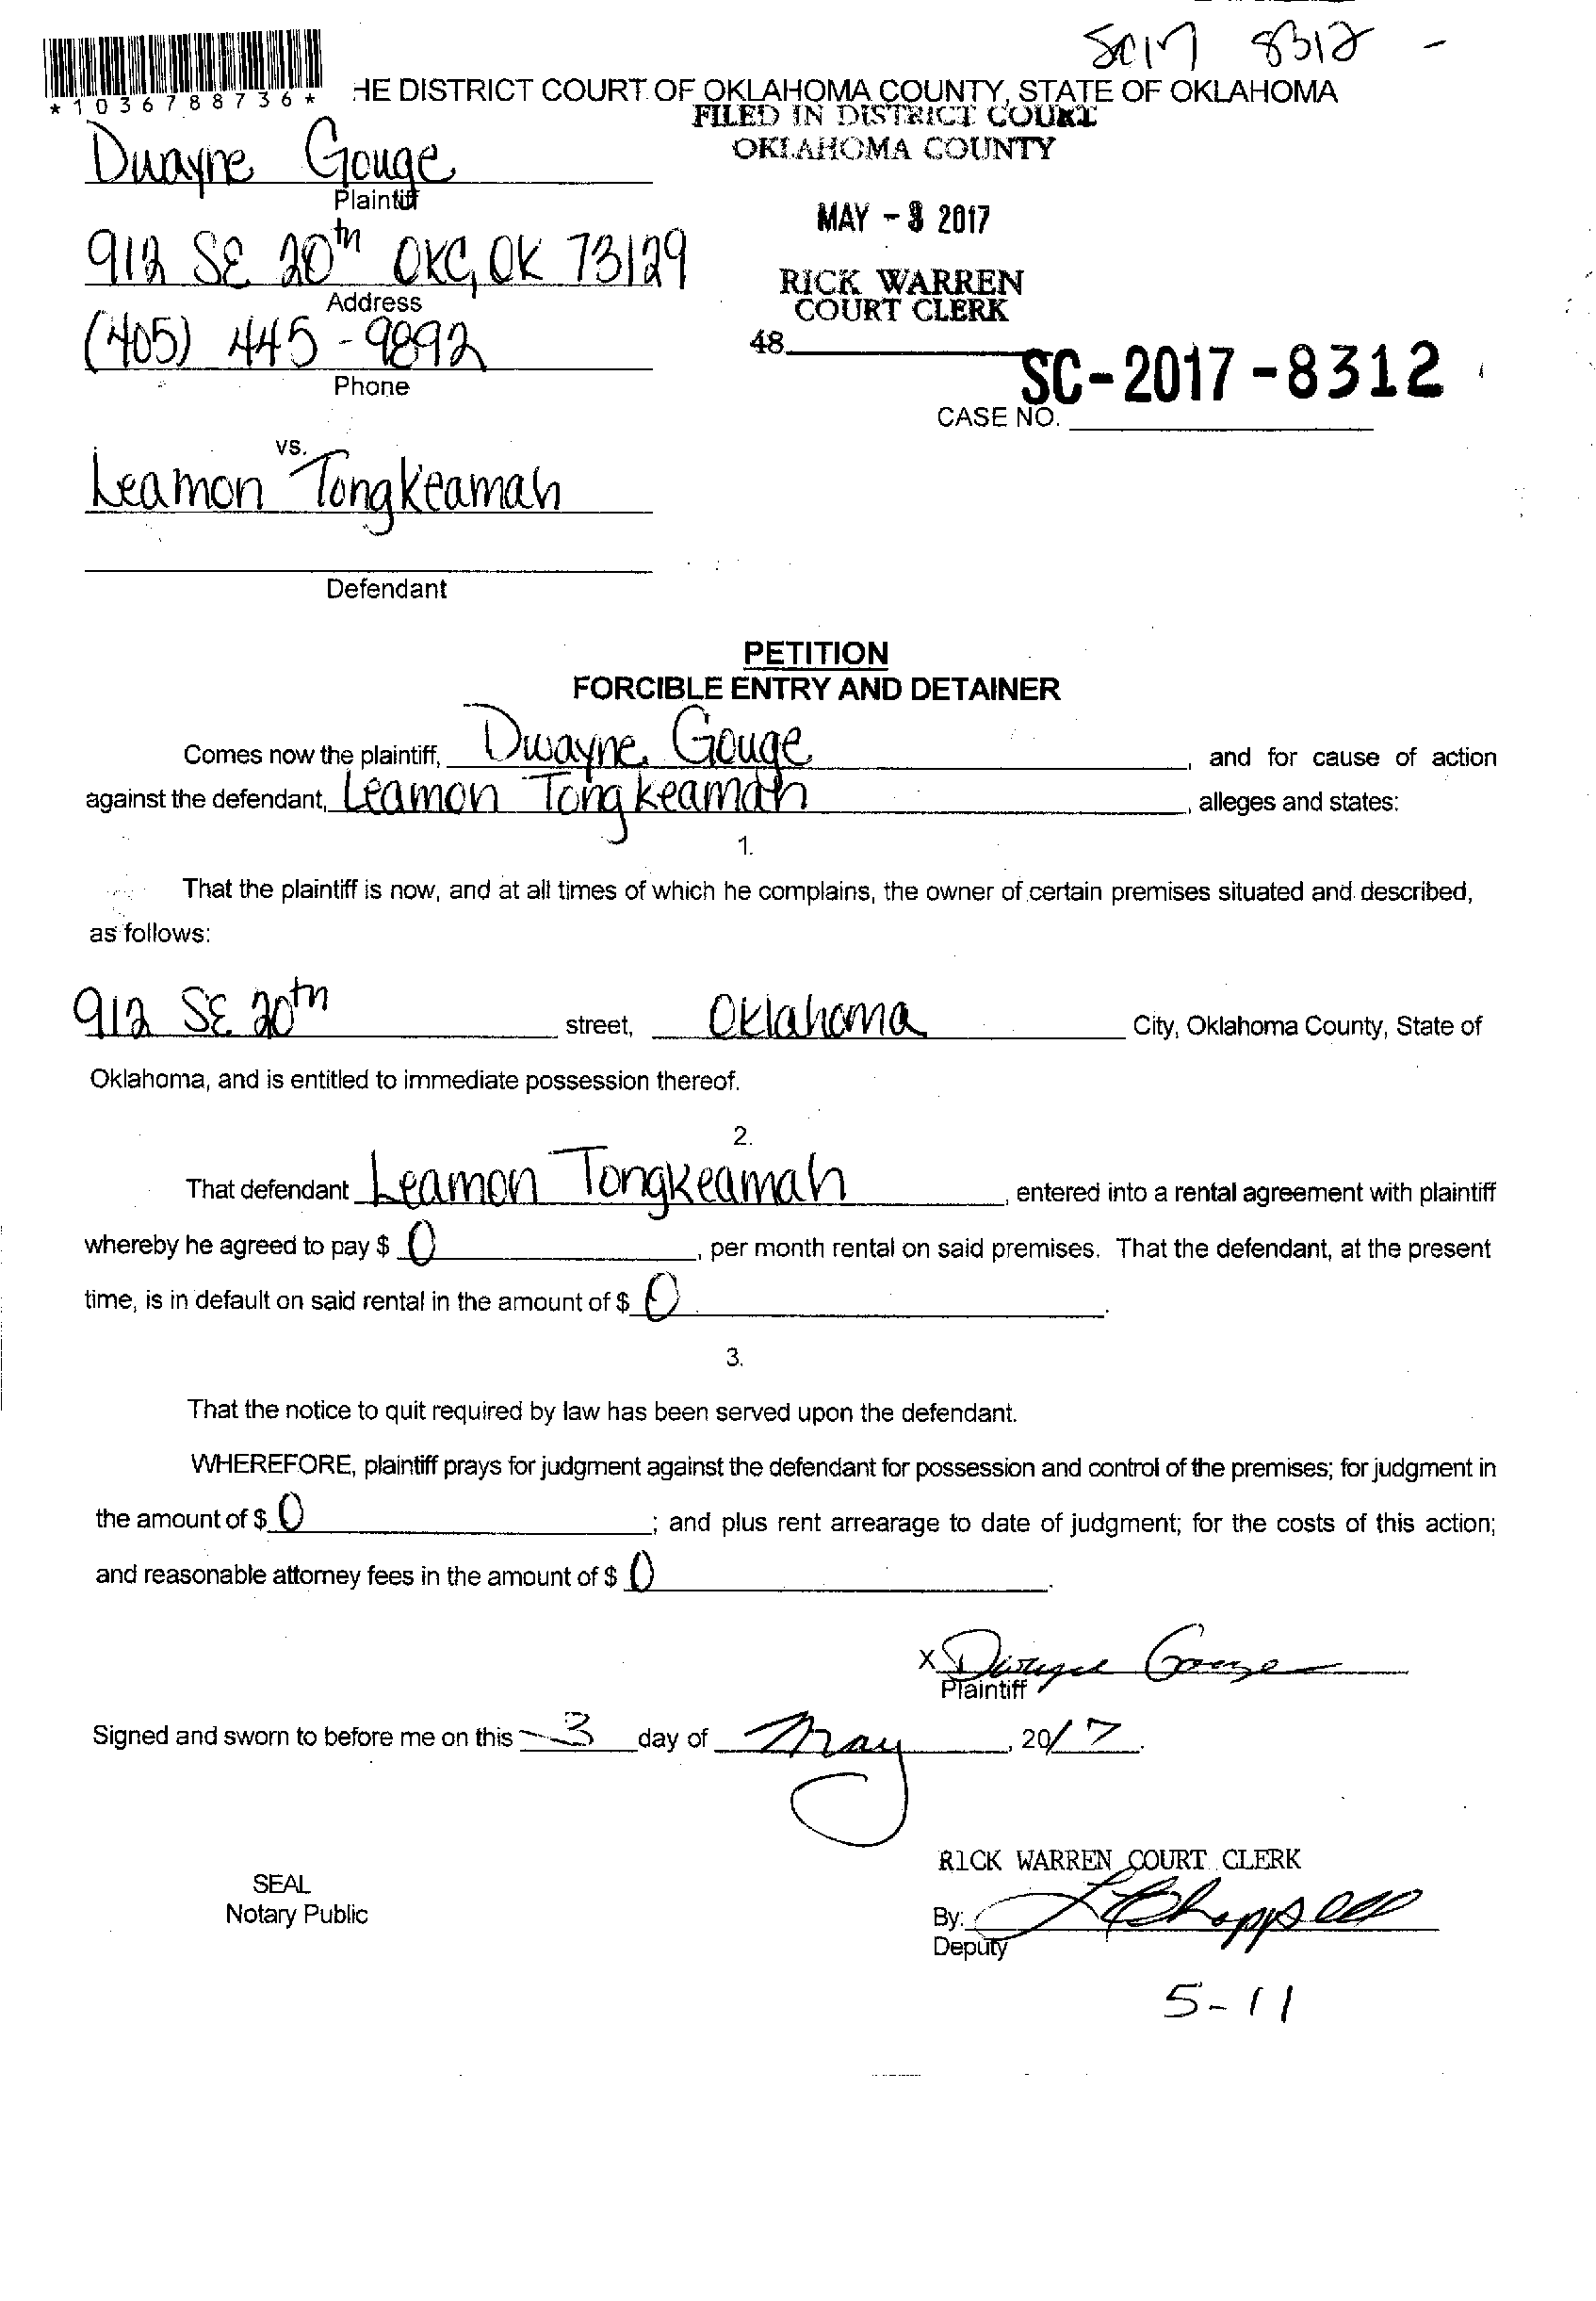 SC17 8312 -
*1036788736*
HE DISTRICT COURT OF OKLAHOMA COUNTY, STATE OF OKLAHOMA
FILED IN DISTRICT COURT
OKLAHOMA COUNTY
Dwayne Gouge
Plaintiff
MAY - 3 2017
912 SE 20th OKC, OK 73129
Address
RICK WARREN
COURT CLERK
(405) 445-9892
Phone
48
SC-2017-8312
CASE NO.
vs.
Leamon Tongkeamah
Defendant
PETITION
FORCIBLE ENTRY AND DETAINER
Comes now the plaintiff, Dwayne Gouge, and for cause of action
against the defendant, Leamon Tongkeamah, alleges and states:
1.
That the plaintiff is now, and at all times of which he complains, the owner of certain premises situated and described,
as follows:
912 SE 20th street, Oklahoma City, Oklahoma County, State of
Oklahoma, and is entitled to immediate possession thereof.
2.
That defendant Leamon Tongkeamah, entered into a rental agreement with plaintiff
whereby he agreed to pay $ 0, per month rental on said premises. That the defendant, at the present
time, is in default on said rental in the amount of $ 0.
3.
That the notice to quit required by law has been served upon the defendant.
WHEREFORE, plaintiff prays for judgment against the defendant for possession and control of the premises; for judgment in
the amount of $ 0; and plus rent arrearage to date of judgment; for the costs of this action;
and reasonable attorney fees in the amount of $ 0.
X Dwayne Gouge
Plaintiff
Signed and sworn to before me on this 3 day of May, 2017.
RICK WARREN COURT CLERK
SEAL
Notary Public
By: Chappell
Deputy
5-11